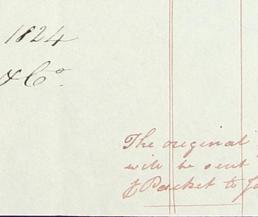 1824
& Co.
The original
will be sent
Packet to